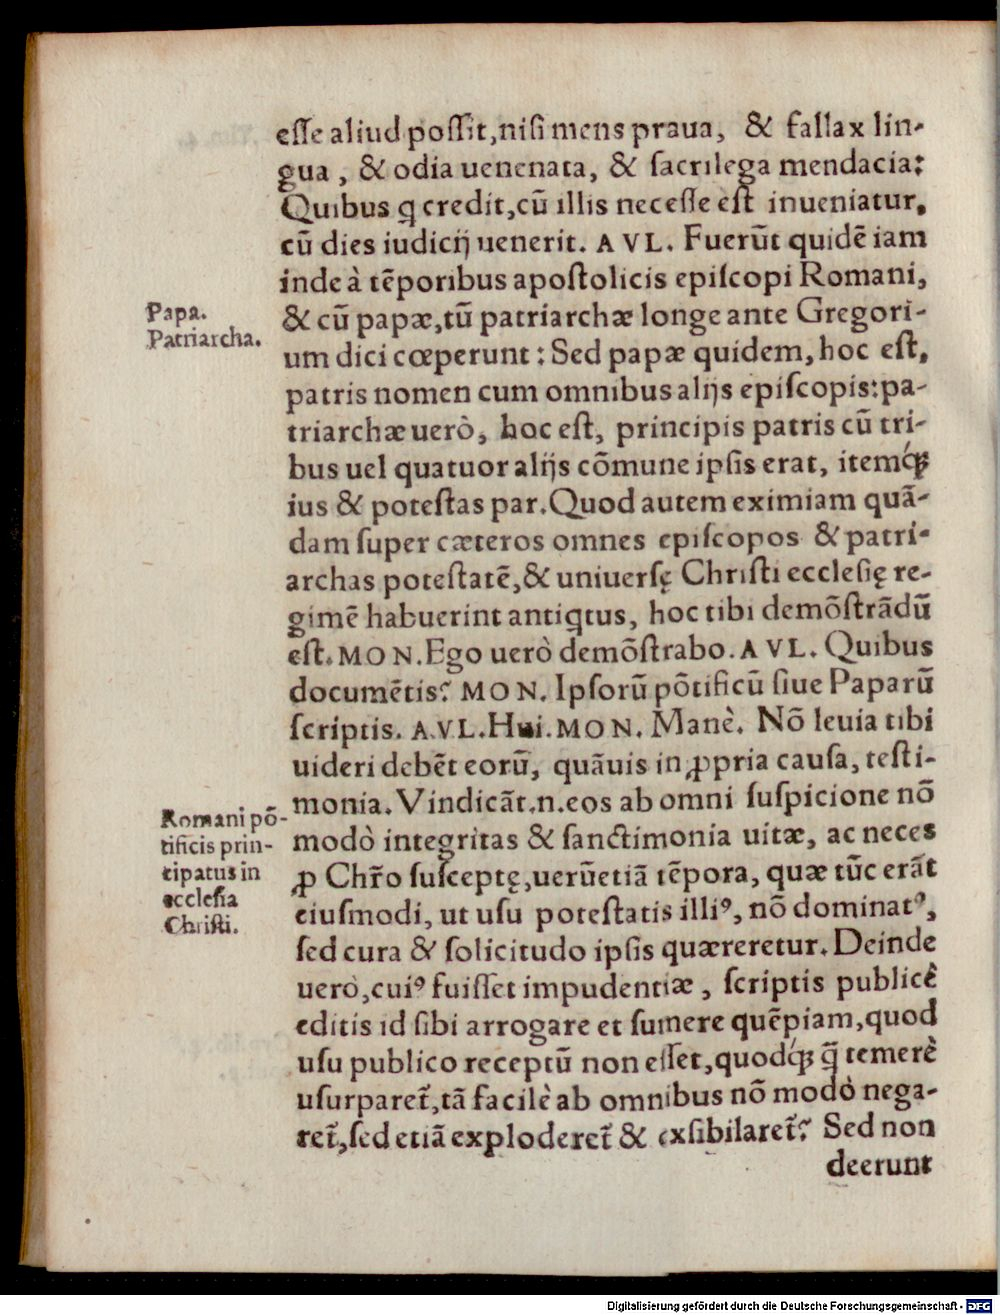 esse aliud possit, nisi mens praua, & fallax lin-
gua, & odia uenenata, & sacrilega mendacia:
Quibus q̲ credit, cū illis necesse est inueniatur,
cū dies iudicij uenerit. AVL. Fuerūt quidē iam
inde à tēporibus apostolicis episcopi Romani,
Papa.
& cū papæ, tū patriarchæ longe ante Gregori-
Patriarcha.
um dici cœperunt: Sed papæ quidem, hoc est,
patris nomen cum omnibus alijs episcopis: pa-
triarchæ uerò, hoc est, principis patris cū tri-
bus uel quatuor alijs cōmune ipsis erat, itemq́ꝫ
ius & potestas par. Quod autem eximiam quā-
dam super cæteros omnes episcopos & patri-
archas potestatē, & uniuersę Christi ecclesię re-
gimē habuerint antiq̲tus, hoc tibi demōstrādū
est. MON. Ego uerò demōstrabo. AVL. Quibus
documētis? MON. Ipsorū pōtificū siue Paparū
scriptis. AVL. Hui. MON. Manè. Nō leuia tibi
uideri debēt eorū, quāuis in ꝓpria causa, testi-
monia. Vindicāt.n.eos ab omni suspicione nō
Romani pō-
tificis prin-
cipatus in
ecclesia
Christi.
modò integritas & sanctimonia uitæ, ac neces
ꝓ Chr̄o susceptę, uerūetiā tēpora, quæ tūc erāt
eiusmodi, ut usu potestatis illiꝰ, nō dominatꝰ,
sed cura & solicitudo ipsis quæreretur. Deinde
uerò, cuiꝰ fuisset impudentiæ, scriptis publicè
editis id sibi arrogare et sumere quēpiam, quod
usu publico receptū non esset, quodq́ꝫ q̄ temerè
usurparet̄, tā facilè ab omnibus nō modò nega-
ret̄, sed etiā exploderet̄ & exsibilaret̄? Sed non
deerunt
Digitalisierung gefördert durch die Deutsche Forschungsgemeinschaft - DFG